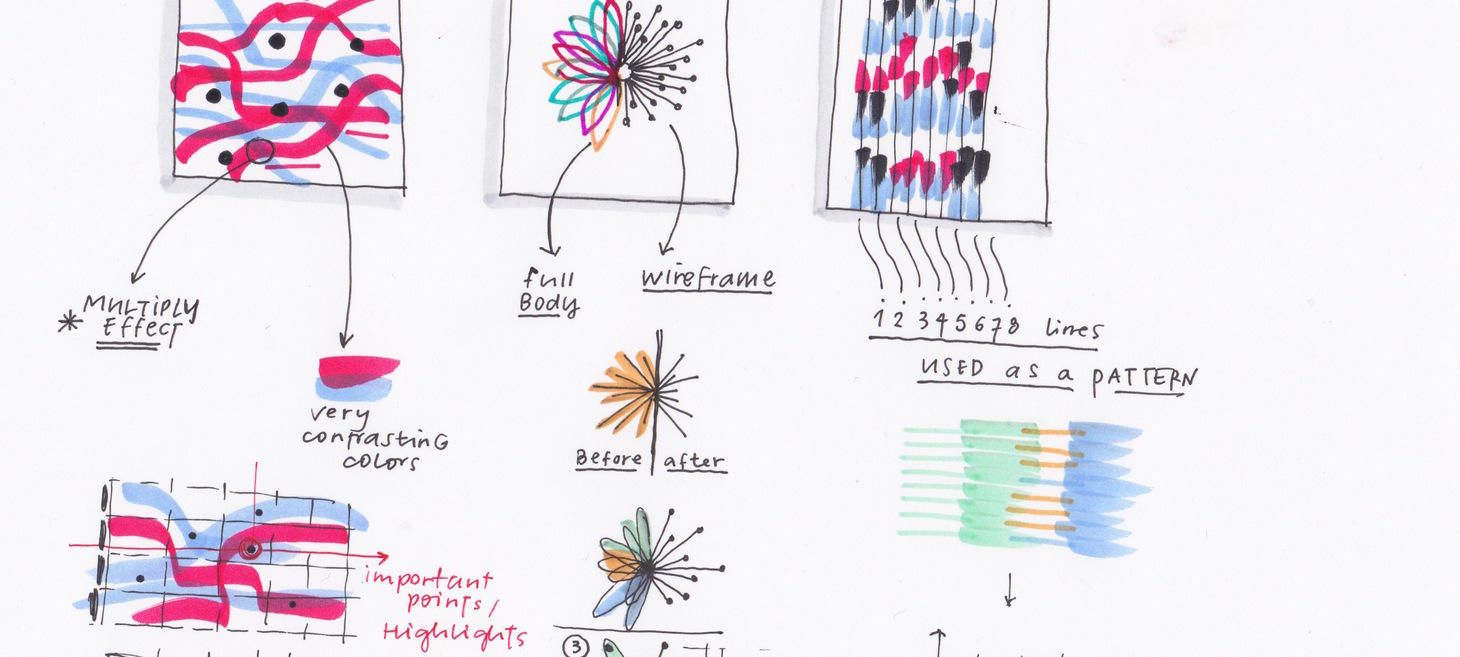 * MULTIPLY
Effect
very
contrasting
colors
important
points/
Highlights
full
Body
wireframe
Before after
3
1 2 3 4 5 6 7 8 lines
USED as a pATTERN